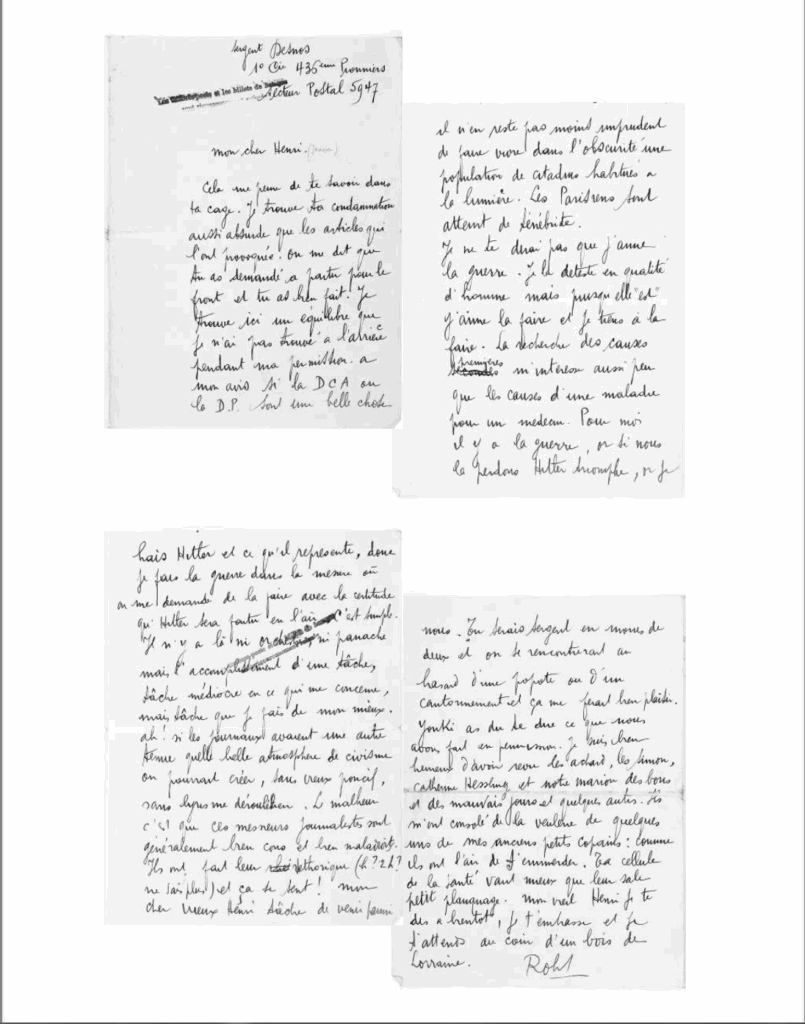 Sergent Desnos
1e Cie 436ème Pionniers
Secteur Postal 5947
et les billets de
mon cher Henri.
Cela me peine de te savoir dans
ta cage. Je trouve ta condamnation
aussi absurde que les articles qui
l'ont provoquée. On me dit que
tu as demandé a partir pour le
front et tu as bien fait. Je
trouve ici un équilibre que
je n'ai pas trouvé a l'arrière
pendant ma permission. a
mon avis si la DCA ou
la D.P. sont une belle chose
il n'en reste pas moins imprudent
de faire vivre dans l'obscurité une
population de citadins habitués a
la lumière. Les Parisiens sont
atteint de ténébrite.
Je ne te dirai pas que j'aime
la guerre. Je la déteste en qualité
d'homme mais puisqu'elle "est"
j'aime la faire et je tiens à la
faire. La recherche des causes
premières
secondes m'interesse aussi peu
que les causes d'une maladie
pour un medecin. Pour moi
il y a la guerre, or si nous
la perdons Hitler triomphe, or je
hais Hitler et ce qu'il represente, donc
je fais la guerre dans la mesure où
on me demande de la faire avec la certitude
qu'Hitler sera foutu en l'air c'est simple.
Il n'y a là ni orchestre, ni panache
mais l'accomplissement d'une tâche,
tâche médiocre en ce qui me concerne,
mais tâche que je fais de mon mieux.
ah! si les journaux avaient une autre
tenue quelle belle atmosphère de civisme
on pourrait créer, sans vieux poncif,
sans lyrisme déroulédien. Le malheur
c'est que ces messieurs journalistes sont
généralement bien cons et bien maladroit.
Ils ont fait leur rethorique (h? 2h?
ne sais plus) et ça se sent! mon
cher vieux Henri tâche de venir parmi
nous. Tu serais sergent en moins de
deux et on se rencontrerait au
hasard d'une popote ou d'un
cantonnement et ça me ferait bien plaisir.
Youki as du te dire ce que nous
avons fait en permission. Je suis bien
heureux d'avoir revu les achard, les Simon,
Catherine Hessling et notre marion des bons
et des mauvais jours et quelques autres. Ils
m'ont consolé de la veulerie de quelques
uns de mes anciens petits copains: comme
ils ont l'air de s'emmerder. Ta cellule
de la santé vaut mieux que leur sale
petit planquage. mon vieil Henri je te
dis a bientot, je t'embrasse et je
t'attends au coin d'un bois de
Lorraine.
Robt